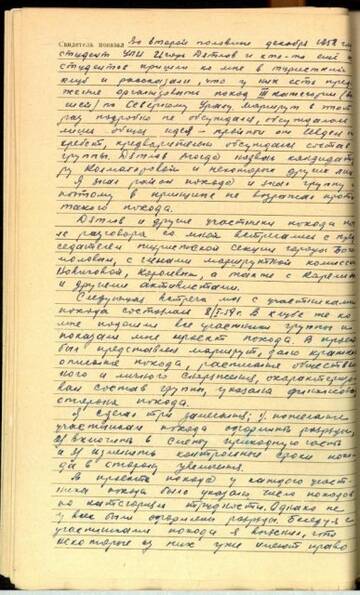 Свидетель показал Во второй половине декабря 1958 г.
студент УПИ Игорь Дятлов и кто-то ещё
студентов пришли ко мне в туристский
клуб и рассказали, что у них есть
организовать поход III категории
по Северному Уралу маршрут в этот
раз подробно не обсуждали, обсуждали
лишь общая идея - пройти от
хребет, предварительно обсуждали состав
группы. Дятлов тогда назвал кандидату
ру Колмогоровой и некоторые других лиц
Я знал район похода и знал группу
поэтому в принципе не возражал против
такого похода.
Дятлов и другие участники похода
разговора со мной встретились с
седателем туристской секции города
половым, с членами маршрутной комиссии
Новиковой, Королёвым, а также с
и другими активистами.
Следующая встреча моя с участниками
похода состоялась 8/I-59г. В клубе ко
мне подошли все участники группы и
показали мне проект похода. В проекте
был представлен маршрут, дано краткое
описание похода, расписание обществен
ного и личного снаряжения, охарактеризо
ван состав группы, указана финансовая
сторона похода.
Я сделал три замечания: 1)
участникам похода оформить разряды,
2) включить в смету приходную часть
и 3) изменить контрольные сроки похо
да в сторону увеличения.
В проекте похода у каждого участ
ника похода было указано число походов
по категориям трудности. Однако не
у всех были оформлены разряды. Беседуя с
участниками похода я выяснил, что
некоторые из них уже имеют право